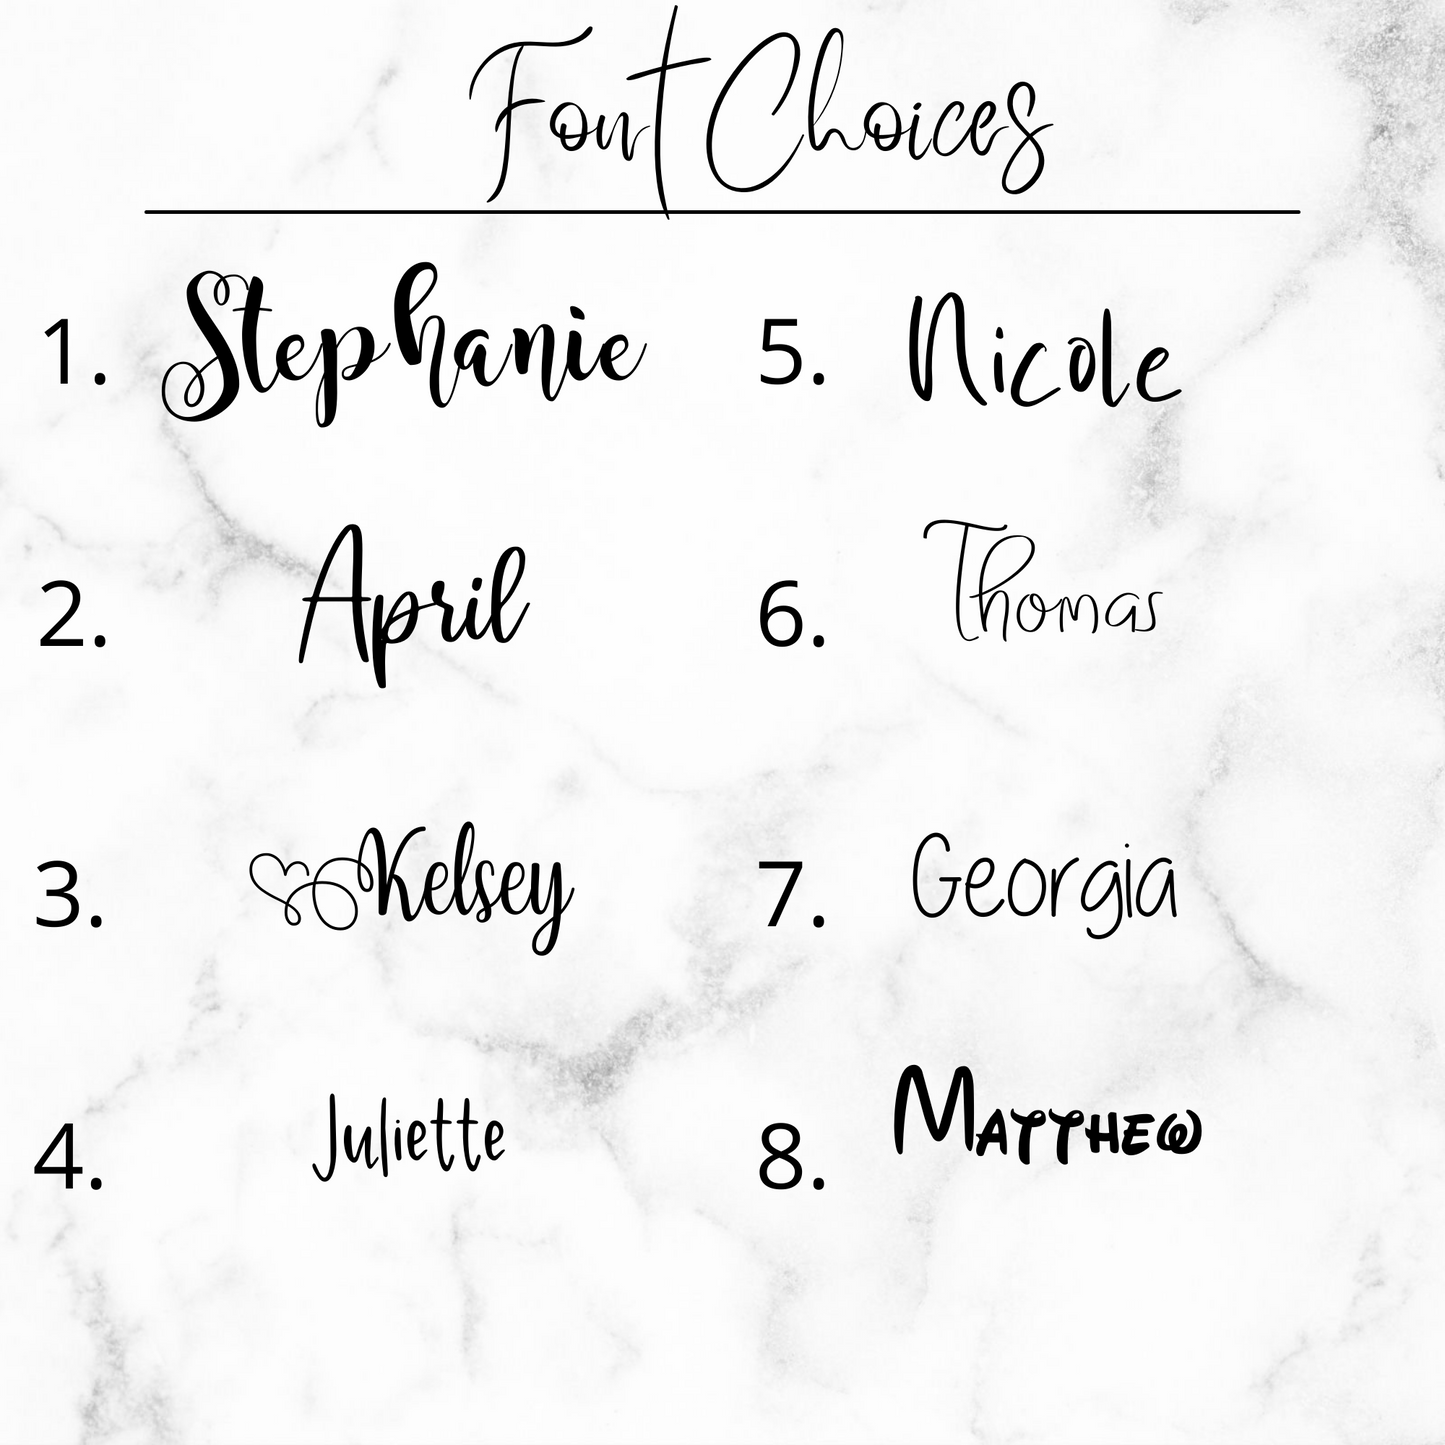 Font Choices
1. Stephanie
2. April
3. Kelsey
4. Juliette
5. Nicole
6. Thomas
7. Georgia
8. Matthew